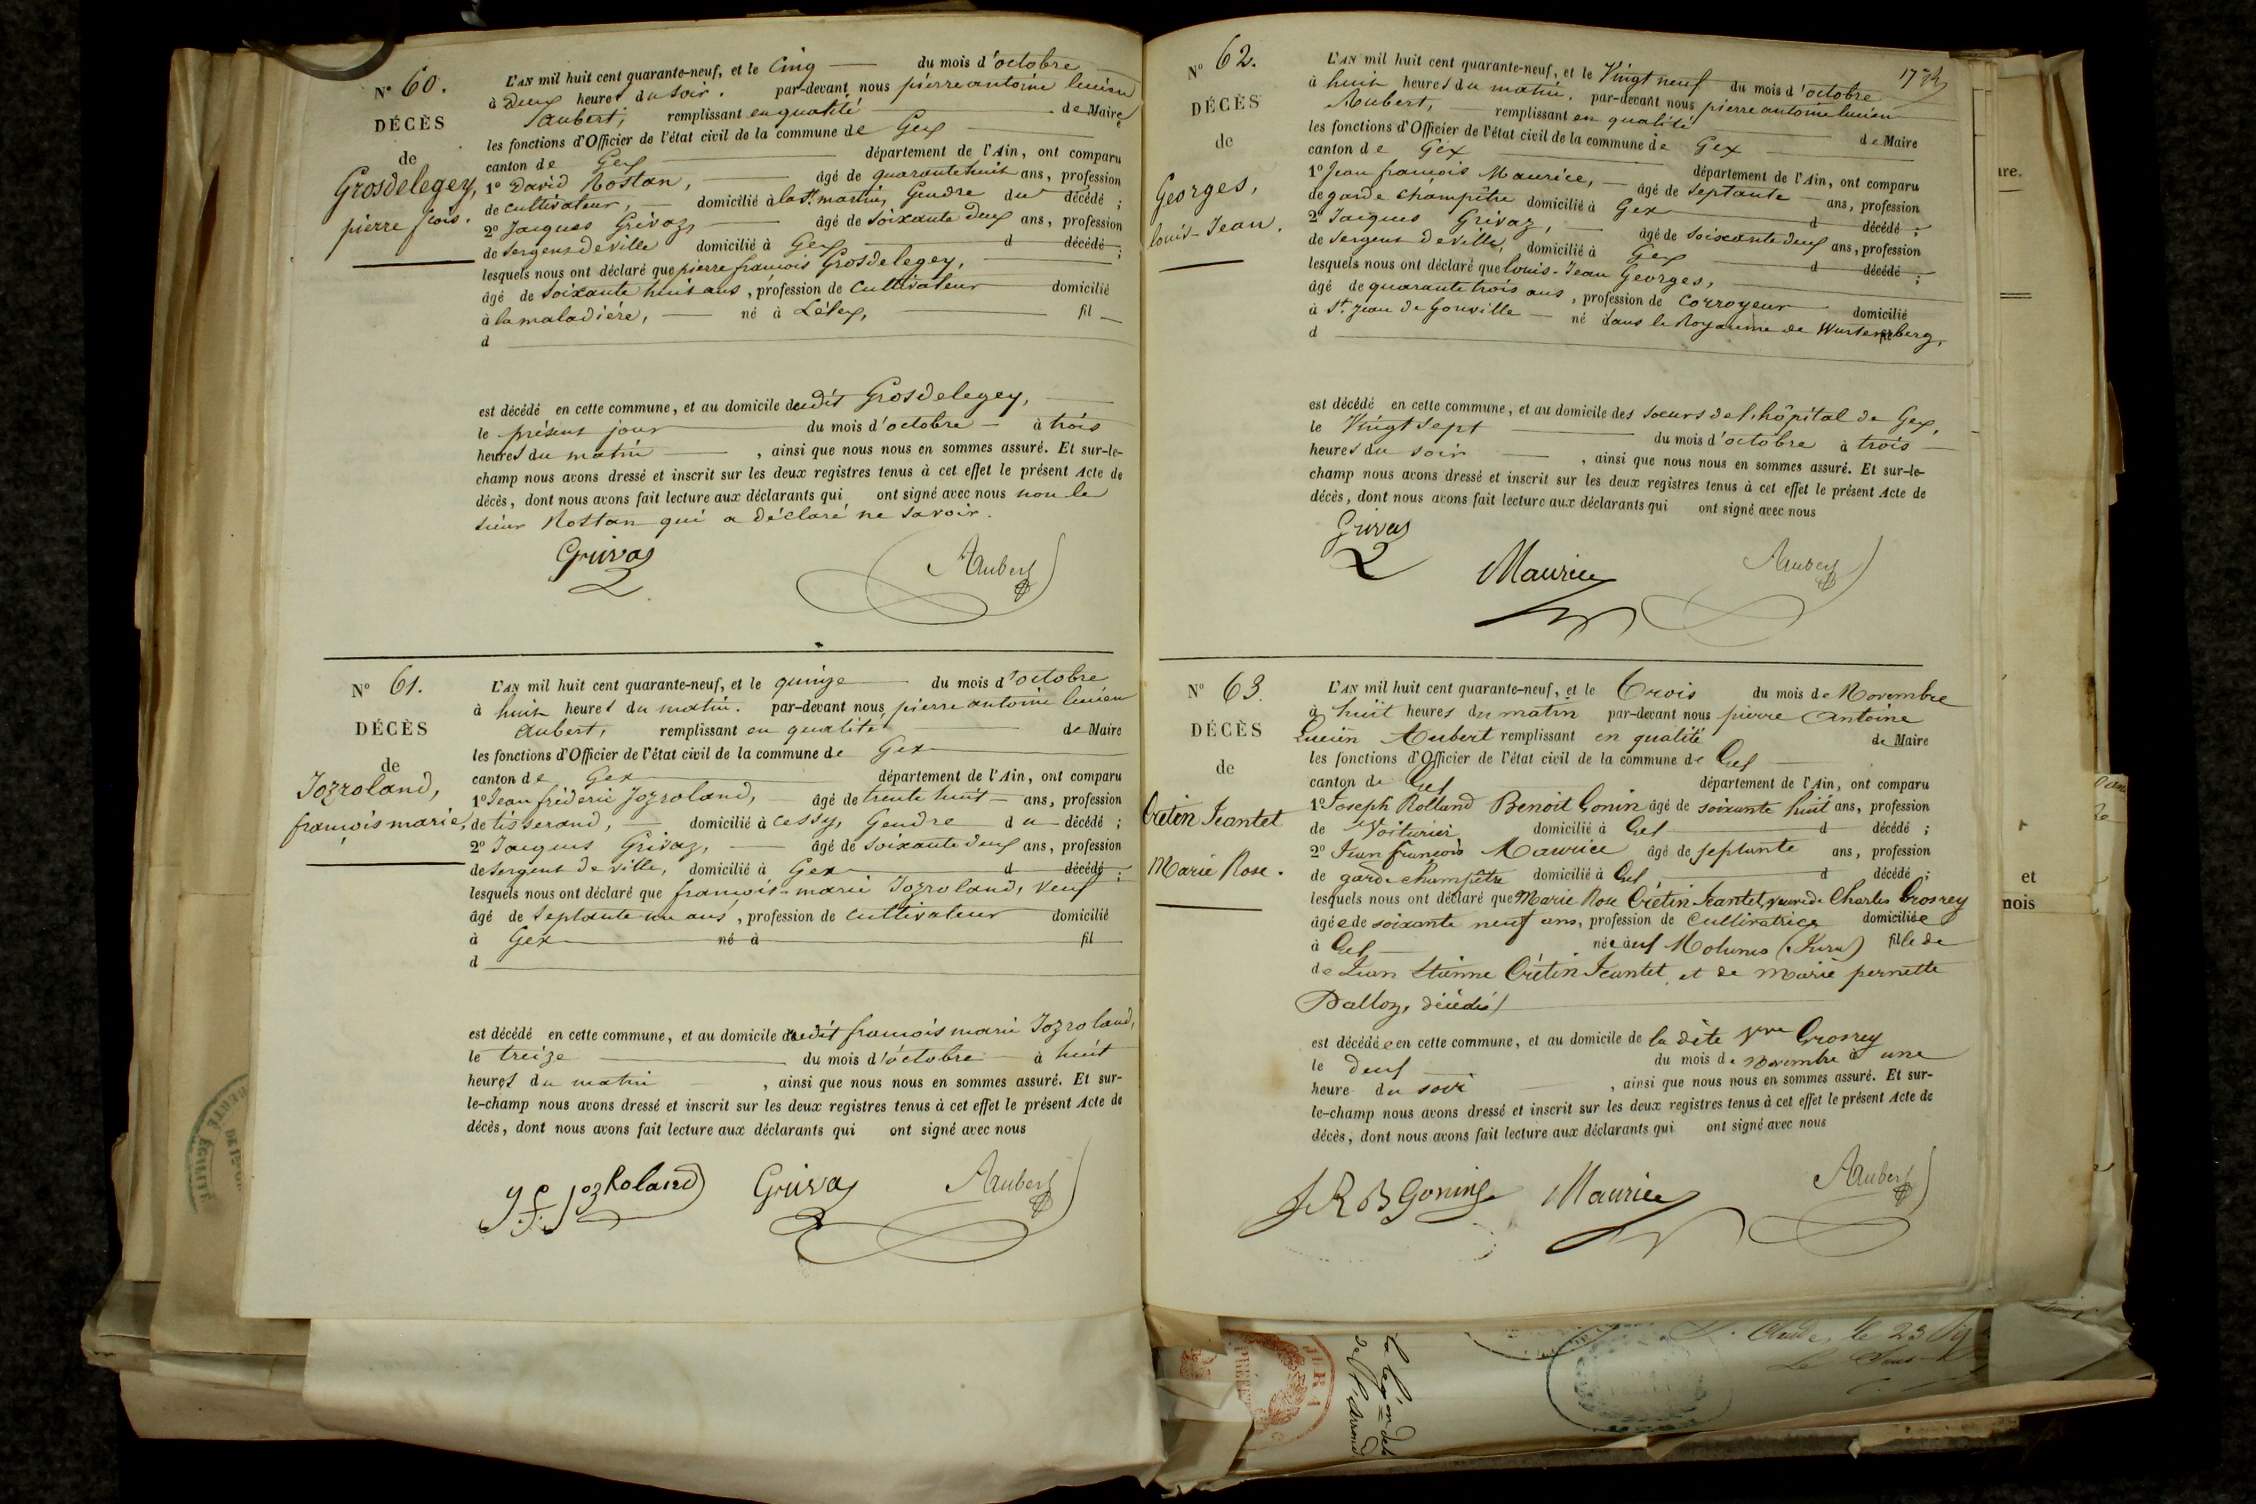 N° 60.
DÉCÈS
de
Grosdelegey,
pierre fcois.
L'AN mil huit cent quarante-neuf, et le Cinq du mois d'octobre
à Deux heures du soir. par-devant nous pierre antoine lucien
Aubert, remplissant en qualité de Maire
les fonctions d'Officier de l'état civil de la commune de Gex
canton de Gex département de l'Ain, ont comparu
1° David Rostan, âgé de quarante huit ans, profession
de cultivateur, domicilié à la St. martin, Gendre du décédé ;
2° Jacques Grivaz, âgé de soixante deux ans, profession
de Sergent de ville domicilié à Gex d décédé ;
lesquels nous ont déclaré que pierre françois Grosdelegey,
âgé de soixante huit ans, profession de cultivateur domicilié
à la maladière, né à Lélex, fil
d
est décédé en cette commune, et au domicile dudit Grosdelegey,
le présent jour du mois d'octobre à trois
heures du matin , ainsi que nous nous en sommes assuré. Et sur-le-
champ nous avons dressé et inscrit sur les deux registres tenus à cet effet le présent Acte de
décès, dont nous avons fait lecture aux déclarants qui ont signé avec nous non le
sieur Rostan qui a déclaré ne savoir.
Grivaz
Aubert
N° 61.
DÉCÈS
de
Jozroland,
françois marie,
L'AN mil huit cent quarante-neuf, et le quinze du mois d'octobre
à huit heures du matin. par-devant nous pierre antoine lucien
Aubert, remplissant en qualité de Maire
les fonctions d'Officier de l'état civil de la commune de Gex
canton de Gex département de l'Ain, ont comparu
1° Jean fréderic Jozroland, âgé de trente huit ans, profession
de tisserand, domicilié à Cessy, Gendre du décédé ;
2° Jacques Grivaz, âgé de soixante deux ans, profession
de Sergent de ville, domicilié à Gex d décédé ;
lesquels nous ont déclaré que françois-marie Jozroland, veuf
âgé de Septante un ans, profession de cultivateur domicilié
à Gex né à fil
d
est décédé en cette commune, et au domicile dudit françois marie Jozroland,
le treize du mois d'octobre à huit
heures du matin , ainsi que nous nous en sommes assuré. Et sur-
le-champ nous avons dressé et inscrit sur les deux registres tenus à cet effet le présent Acte de
décès, dont nous avons fait lecture aux déclarants qui ont signé avec nous
J. f. JozRoland Grivaz Aubert
N° 62.
DÉCÈS
de
Georges,
louis-Jean.
L'AN mil huit cent quarante-neuf, et le Vingt neuf du mois d'octobre
à huit heures du matin. par-devant nous pierre antoine lucien
Aubert, remplissant en qualité de Maire
les fonctions d'Officier de l'état civil de la commune de Gex
canton de Gex département de l'Ain, ont comparu
1° Jean françois Maurice, âgé de Septante ans, profession
de garde champêtre domicilié à Gex d décédé ;
2° Jacques Grivaz, âgé de soixante deux ans, profession
de Sergent de ville, domicilié à Gex d décédé ;
lesquels nous ont déclaré que louis-Jean Georges,
âgé de quarante trois ans, profession de corroyeur domicilié
à St. Jean de Gonville né dans le Royaume de Wurtemberg,
d
est décédé en cette commune, et au domicile des soeurs de l'hôpital de Gex,
le Vingt sept du mois d'octobre à trois
heures du soir , ainsi que nous nous en sommes assuré. Et sur-le-
champ nous avons dressé et inscrit sur les deux registres tenus à cet effet le présent Acte de
décès, dont nous avons fait lecture aux déclarants qui ont signé avec nous
Grivaz
Maurice Aubert
N° 63.
DÉCÈS
de
Crétin Jeantet
Marie Rose.
L'AN mil huit cent quarante-neuf, et le Trois du mois de Novembre
à huit heures du matin par-devant nous pierre Antoine
Lucien Aubert remplissant en qualité de Maire
les fonctions d'Officier de l'état civil de la commune de Gex
canton de Gex département de l'Ain, ont comparu
1° Joseph Rolland Benoit Gonin âgé de soixante huit ans, profession
de Voiturier domicilié à Gex d décédé ;
2° Jean françois Maurice âgé de septante ans, profession
de garde champêtre domicilié à Gex d décédé ;
lesquels nous ont déclaré que Marie Rose Crétin Jeantet, veuve de Charles Grosrey
âgée de soixante neuf ans, profession de cultivatrice domiciliée
à Gex née aux Molunes (Jura) fille de
de Jean Etienne Crétin Jeantet, et de Marie pernette
Dalloz, décédés
est décédée en cette commune, et au domicile de la dite Vve Grosrey
le deux du mois de Novembre à une
heure du soir , ainsi que nous nous en sommes assuré. Et sur-
le-champ nous avons dressé et inscrit sur les deux registres tenus à cet effet le présent Acte de
décès, dont nous avons fait lecture aux déclarants qui ont signé avec nous
J R B Gonin Maurice Aubert
et
mois
JURA